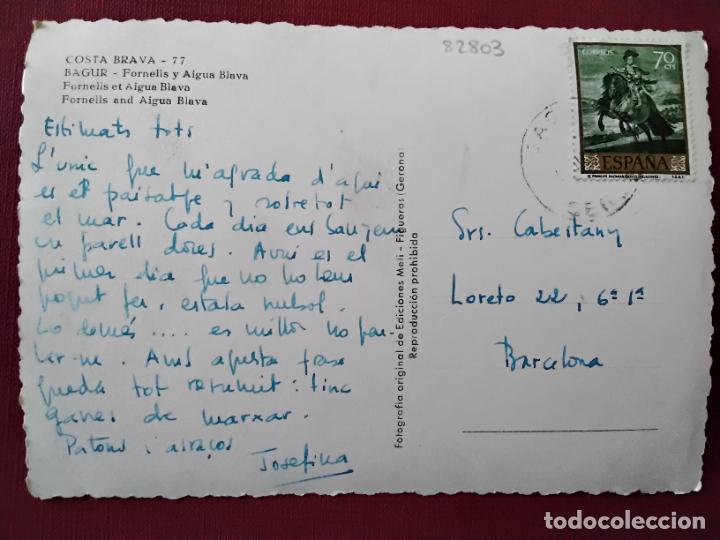 82803
COSTA BRAVA - 77
BAGUR - Fornells y Aigua Blava
Fornells et Aigua Blava
Fornells and Aigua Blava
CORREOS 70 CTS
ESPAÑA
Estimats tots
L'unic que m'agrada d'aqui
es el paisatge y sobretot
el mar. Cada dia ens banyem
un parell dores. Avui es el
primer dia que no ho hem
pogut fer, estava nubol.
Lo demés .... es millor no par-
lar-ne. Amb aquesta frase
queda tot resumit: tinc
ganes de marxar.
Patons i abraços
Josefina
Fotografia original de Ediciones Meli - Figueras (Gerona)
Reproducción prohibida
Srs. Cabestany
Loreto 22, 6º 1ª
Barcelona
todocoleccion.net